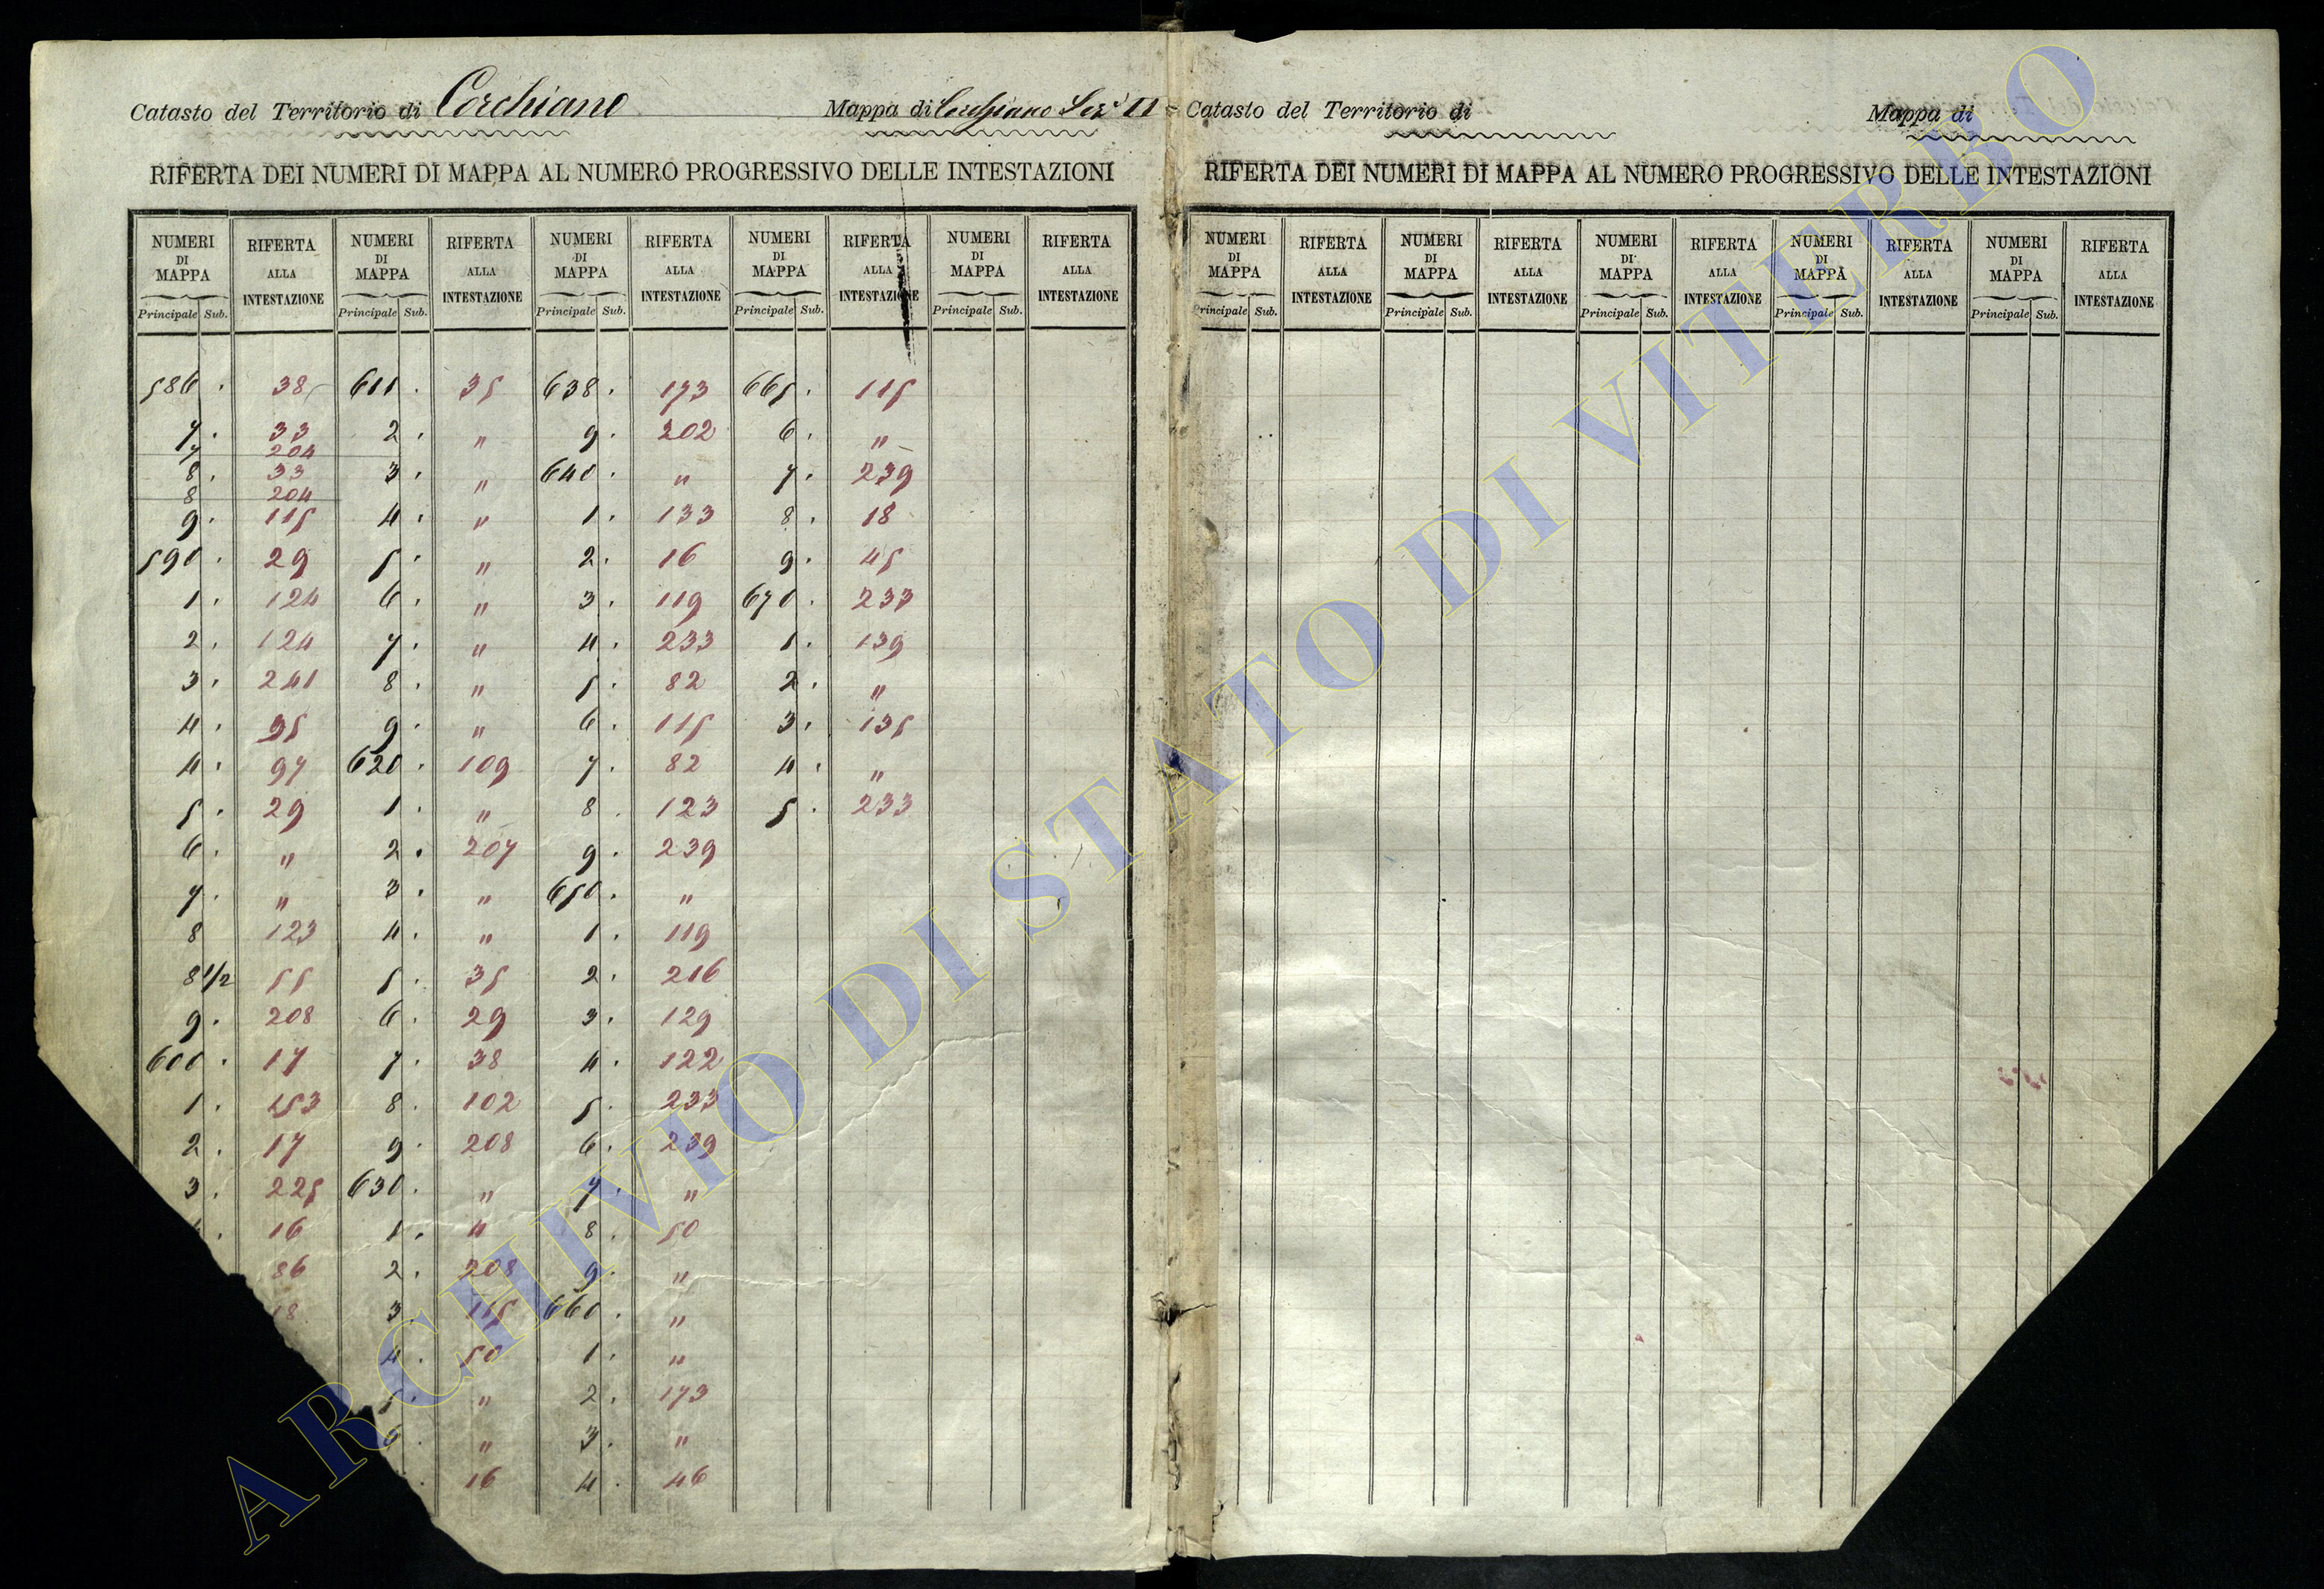 Catasto del Territorio di Corchiano Mappa di Corchiano Sez.e II
RIFERTA DEI NUMERI DI MAPPA AL NUMERO PROGRESSIVO DELLE INTESTAZIONI
NUMERI DI MAPPA RIFERTA ALLA INTESTAZIONE NUMERI DI MAPPA RIFERTA ALLA INTESTAZIONE NUMERI DI MAPPA RIFERTA ALLA INTESTAZIONE NUMERI DI MAPPA RIFERTA ALLA INTESTAZIONE NUMERI DI MAPPA RIFERTA ALLA INTESTAZIONE
Principale Sub. Principale Sub. Principale Sub. Principale Sub. Principale Sub.
586 . 38 611 . 35 638 . 173 665 . 115
7 . 33 2 . " 9 . 202 6 . "
7 204
8 . 33 3 . " 640 . " 7 . 239
8 204
9 . 115 4 . " 1 . 133 8 . 18
590 . 29 5 . " 2 . 16 9 . 45
1 . 124 6 . " 3 . 119 670 . 233
2 . 124 7 . " 4 . 233 1 . 139
3 . 241 8 . " 5 . 82 2 . "
4 . 95 9 . " 6 . 115 3 . 135
4 . 97 620 . 109 7 . 82 4 . "
5 . 29 1 . " 8 . 123 5 . 233
6 . " 2 . 207 9 . 239
7 . " 3 . " 650 . "
8 123 4 . " 1 . 119
8 1/2 55 5 . 35 2 . 216
9 . 208 6 . 29 3 . 129
600 . 17 7 . 38 4 . 122
1 . 153 8 . 102 5 . 233
2 . 17 9 . 208 6 . 239
3 . 225 630 . " 7 . "
16 1 . " 8 . 50
86 2 . 208 9 . "
18 3 . 115 660 . "
4 . 50 1 . "
5 . " 2 . 173
6 . " 3 . "
16 4 . 46
Catasto del Territorio di Mappa di
RIFERTA DEI NUMERI DI MAPPA AL NUMERO PROGRESSIVO DELLE INTESTAZIONI
NUMERI DI MAPPA RIFERTA ALLA INTESTAZIONE NUMERI DI MAPPA RIFERTA ALLA INTESTAZIONE NUMERI DI MAPPA RIFERTA ALLA INTESTAZIONE NUMERI DI MAPPA RIFERTA ALLA INTESTAZIONE NUMERI DI MAPPA RIFERTA ALLA INTESTAZIONE
Principale Sub. Principale Sub. Principale Sub. Principale Sub. Principale Sub.
ARCHIVIO DI STATO DI VITERBO